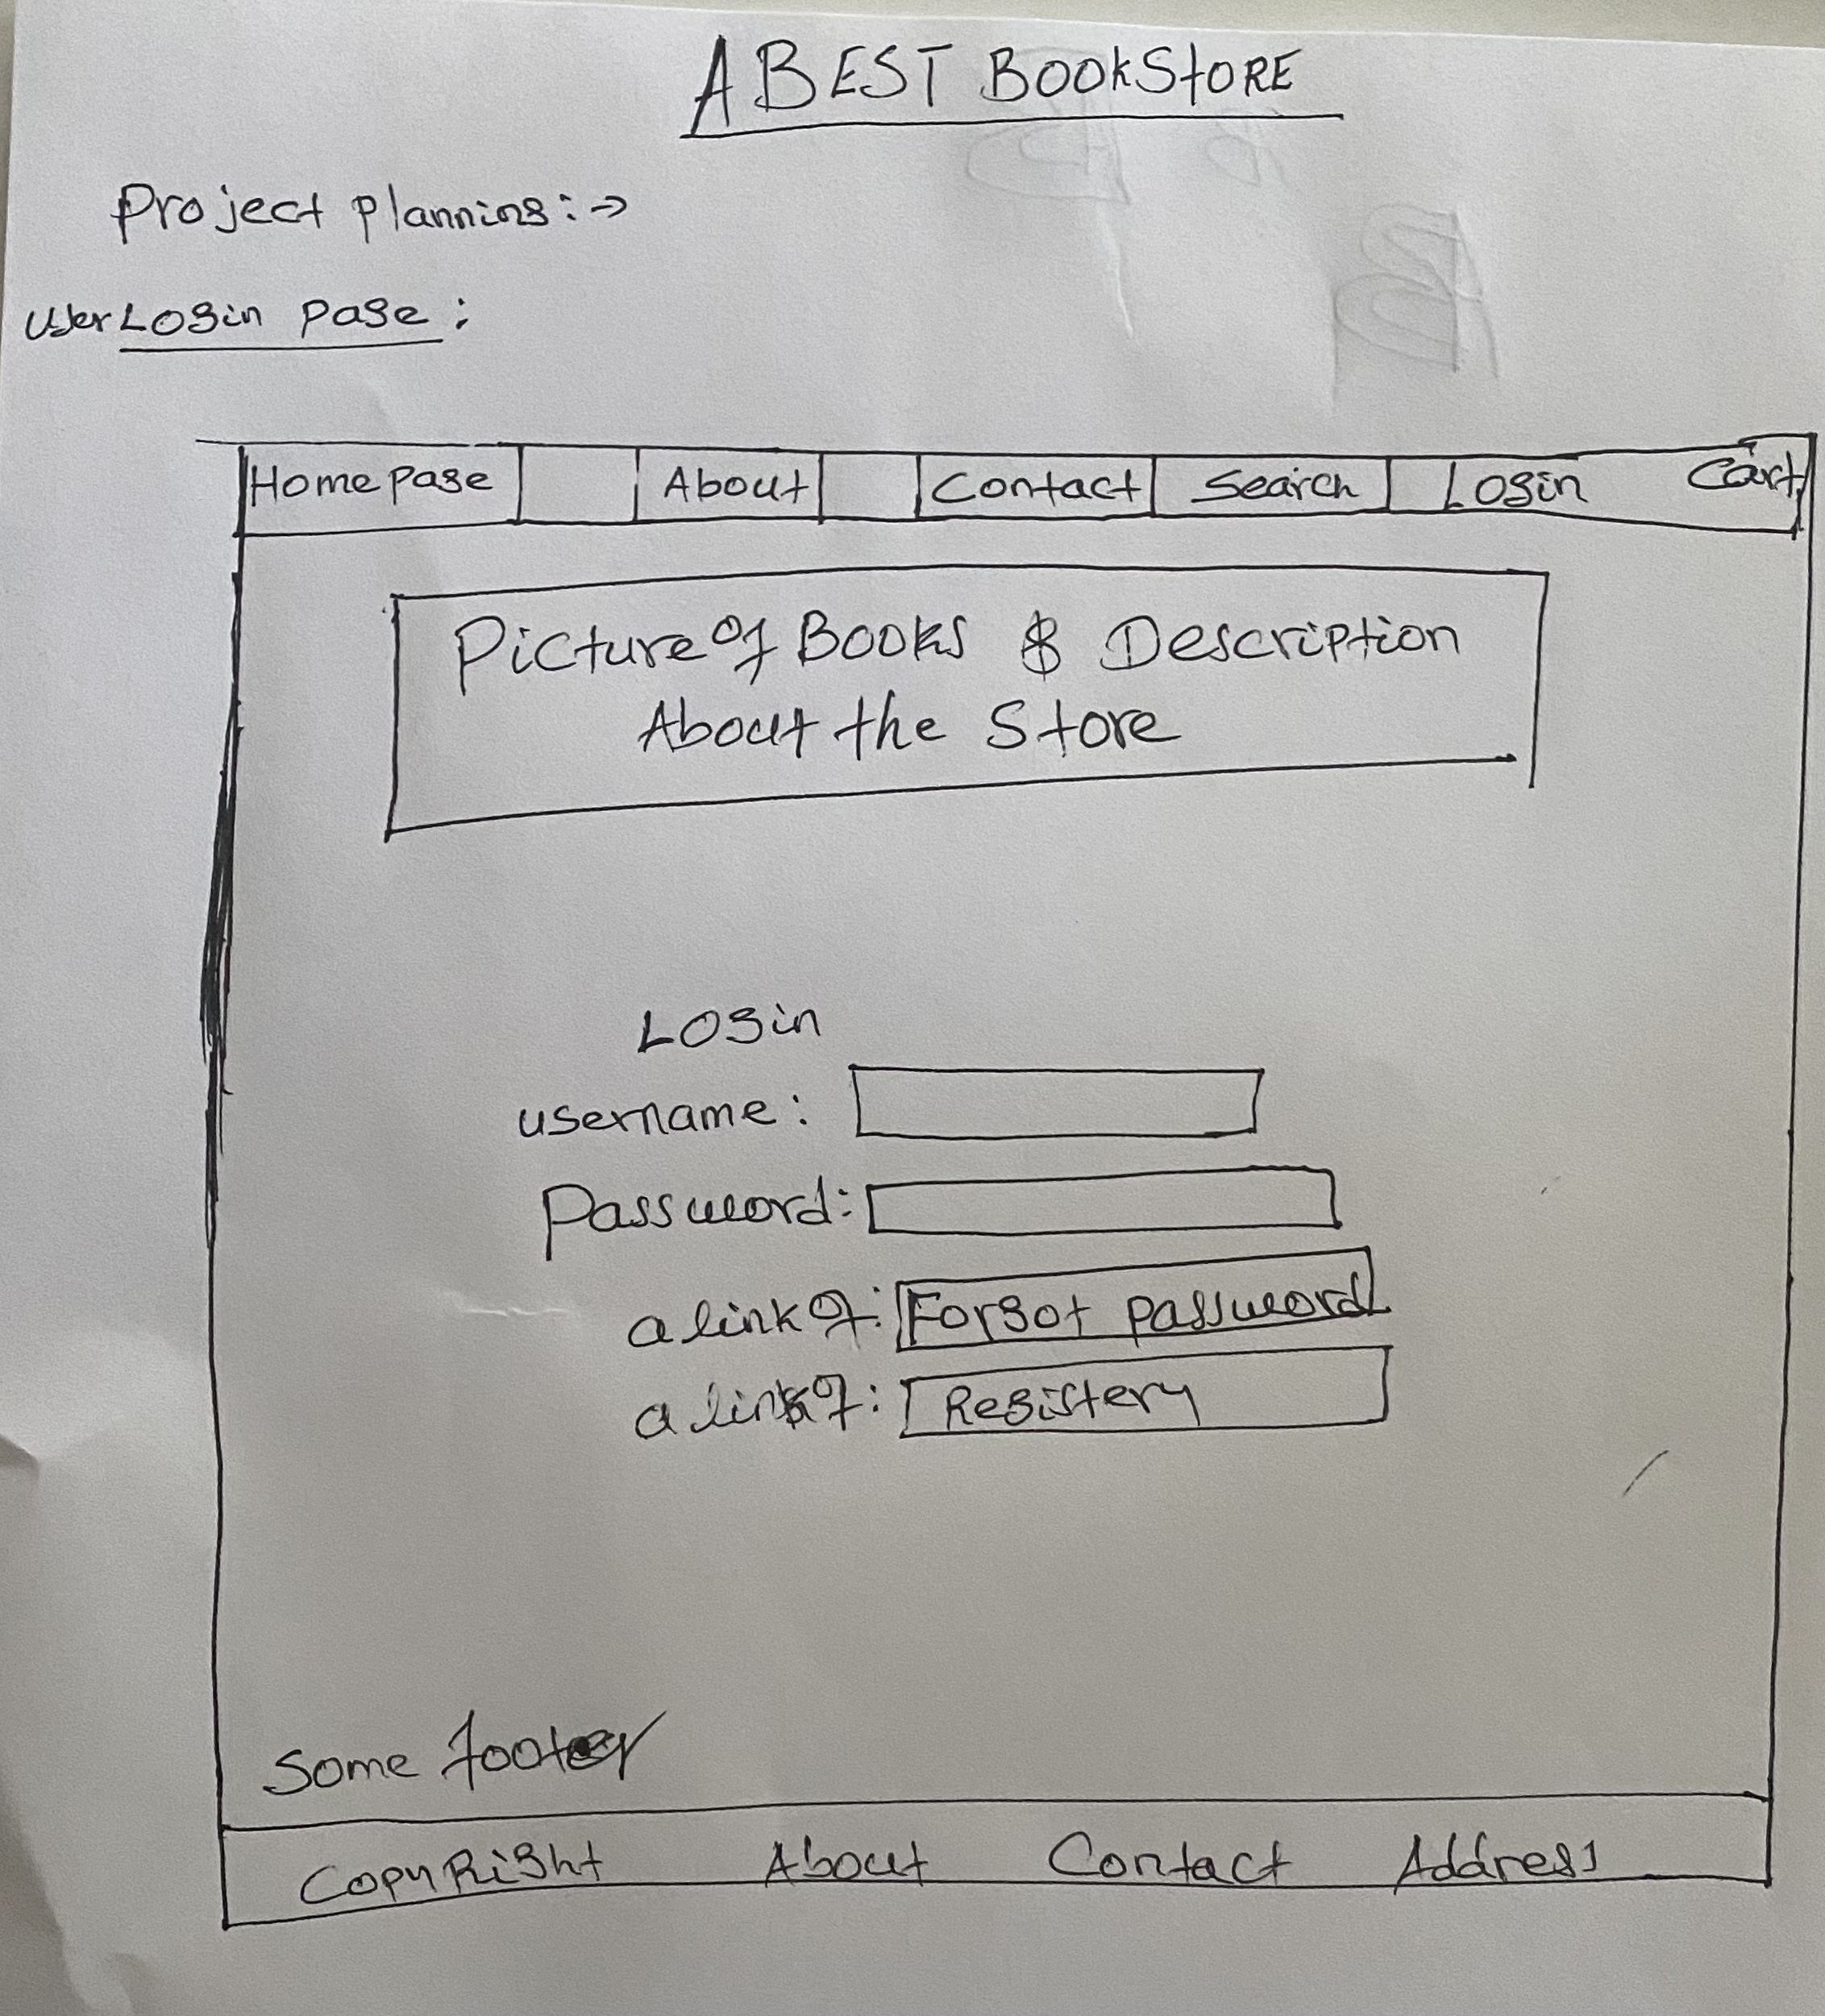 A BEST BOOKSTORE
Project planning:→
User Login page:
Homepage About Contact Search Login Cart
Picture of Books & Description
About the Store
Login
username:
Password:
a link of: Forgot password
a link of: Registery
Some footer
CopyRight About Contact Address